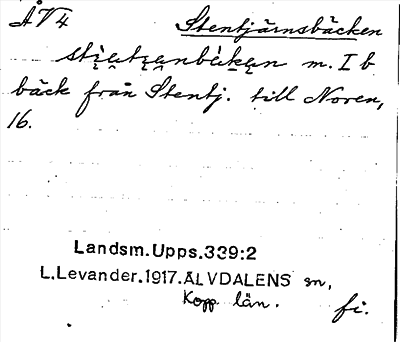 ÅV4 Stentjärnsbäcken
m. I b
bäck från Stentj. till Noren,
16.
Landsm.Upps.339:2
L.Levander.1917.ÄLVDALENS sn,
Kopp. län. fi.